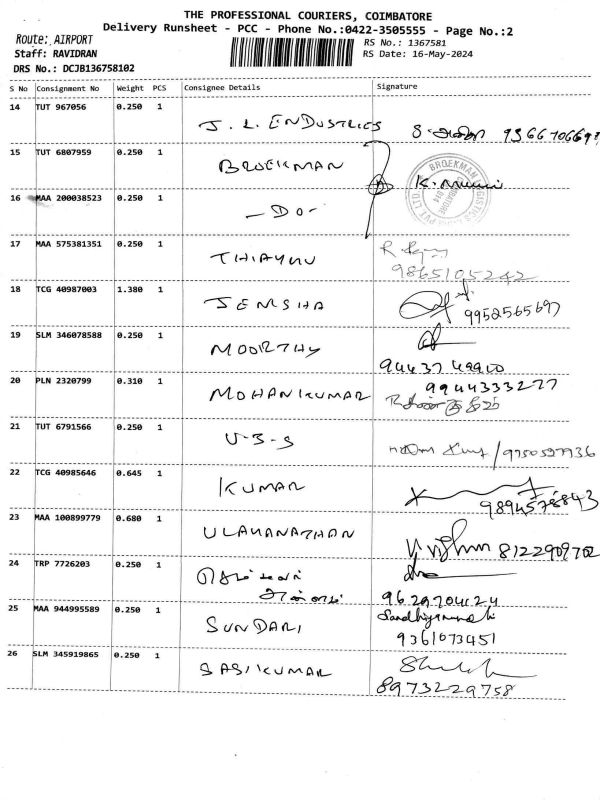 THE PROFESSIONAL COURIERS, COIMBATORE
Delivery Runsheet - PCC - Phone No.:0422-3505555 - Page No.:2
Route: AIRPORT
RS No.: 1367581
Staff: RAVIDRAN
RS Date: 16-May-2024
DRS No.: DCJB136758102
S No Consignment No Weight PCS Consignee Details Signature
14 TUT 967056 0.250 1
J. L. ENDUSTRIES
15 TUT 6807959 0.250 1
BROEKMAN
16 MAA 200038523 0.250 1
- DO -
17 MAA 575381351 0.250 1
9865105242
18 TCG 40987003 1.380 1
JEMSHA 9952565697
19 SLM 346078588 0.250 1
MOORTHY
20 PLN 2320799 0.310 1
9944333277
MOHANKUMAR
21 TUT 6791566 0.250 1
U-3-S
22 TCG 40985646 0.645 1
KUMAR
9894578843
23 MAA 100899779 0.680 1
ULAHANATHAN 8122909702
24 TRP 7726203 0.250 1
25 MAA 944995589 0.250 1
SUNDARI
9361073451
26 SLM 345919865 0.250 1
SASIKUMAR
8973229758